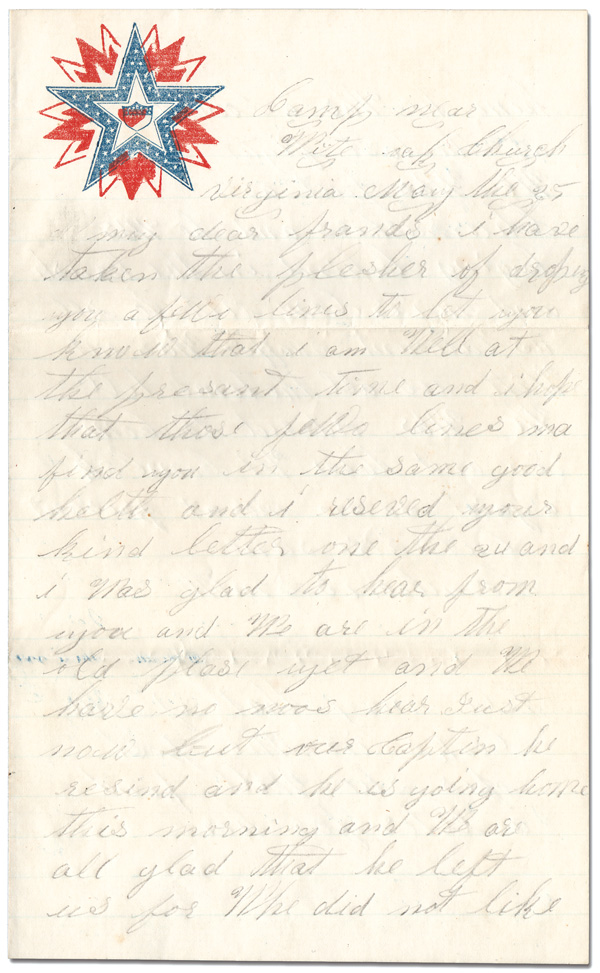 Camp near
Wite oak Church
virginia May the 25
my dear frande i have
taken the plesher of droping
you a fewe lines to let you
know that i am Well at
the presant time and i hope
that those fewe lines ma
find you in the same good
helth and i reseved your
kind letter one the 24 and
i Was glad to hear from
you and We are in the
old plase yet and We
have no noos hear Just
now but our Captin he
resind and he is going home
this morning and We are
all glad that he left
us for We did not like